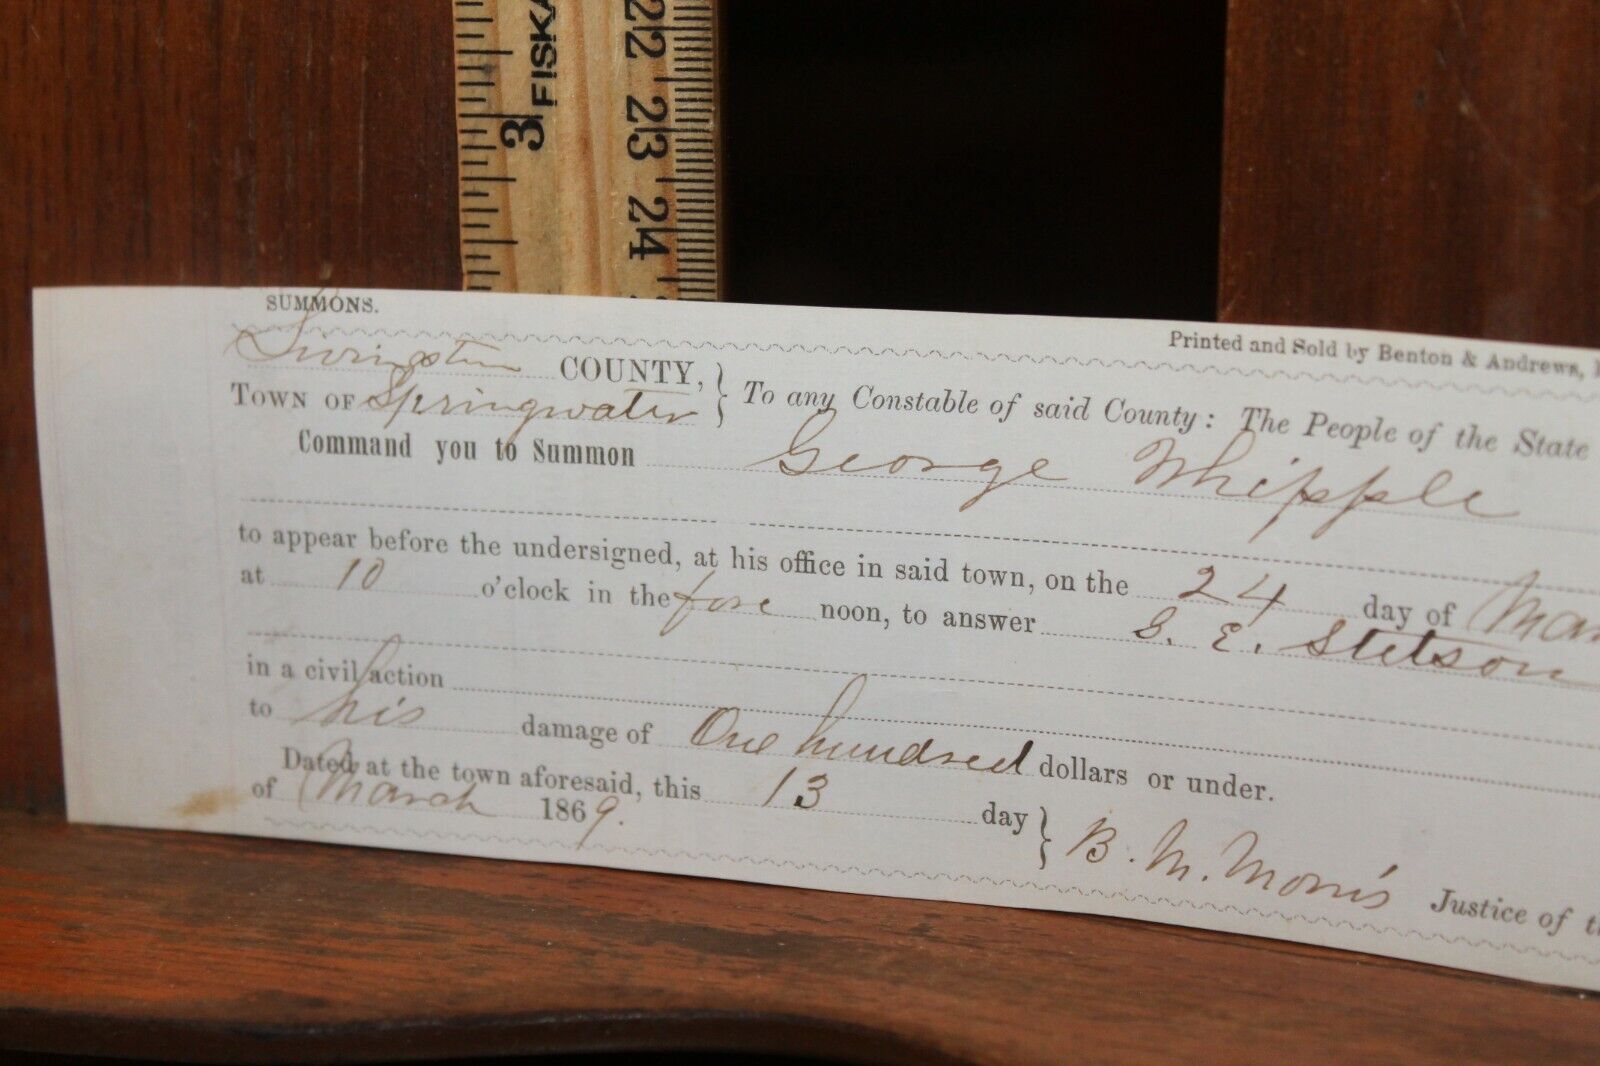 FISKA
3
22 23 24
SUMMONS.
Printed and Sold by Benton & Andrews,
Livingston COUNTY,
Town of Springwater } To any Constable of said County: The People of the State
Command you to Summon George Whipple
to appear before the undersigned, at his office in said town, on the 24 day of Mar
at 10 o'clock in the fore noon, to answer S. E. Stetson
in a civil action
to his damage of One hundred dollars or under.
Dated at the town aforesaid, this 13 day }
of March 1869. B. M. Morris Justice of